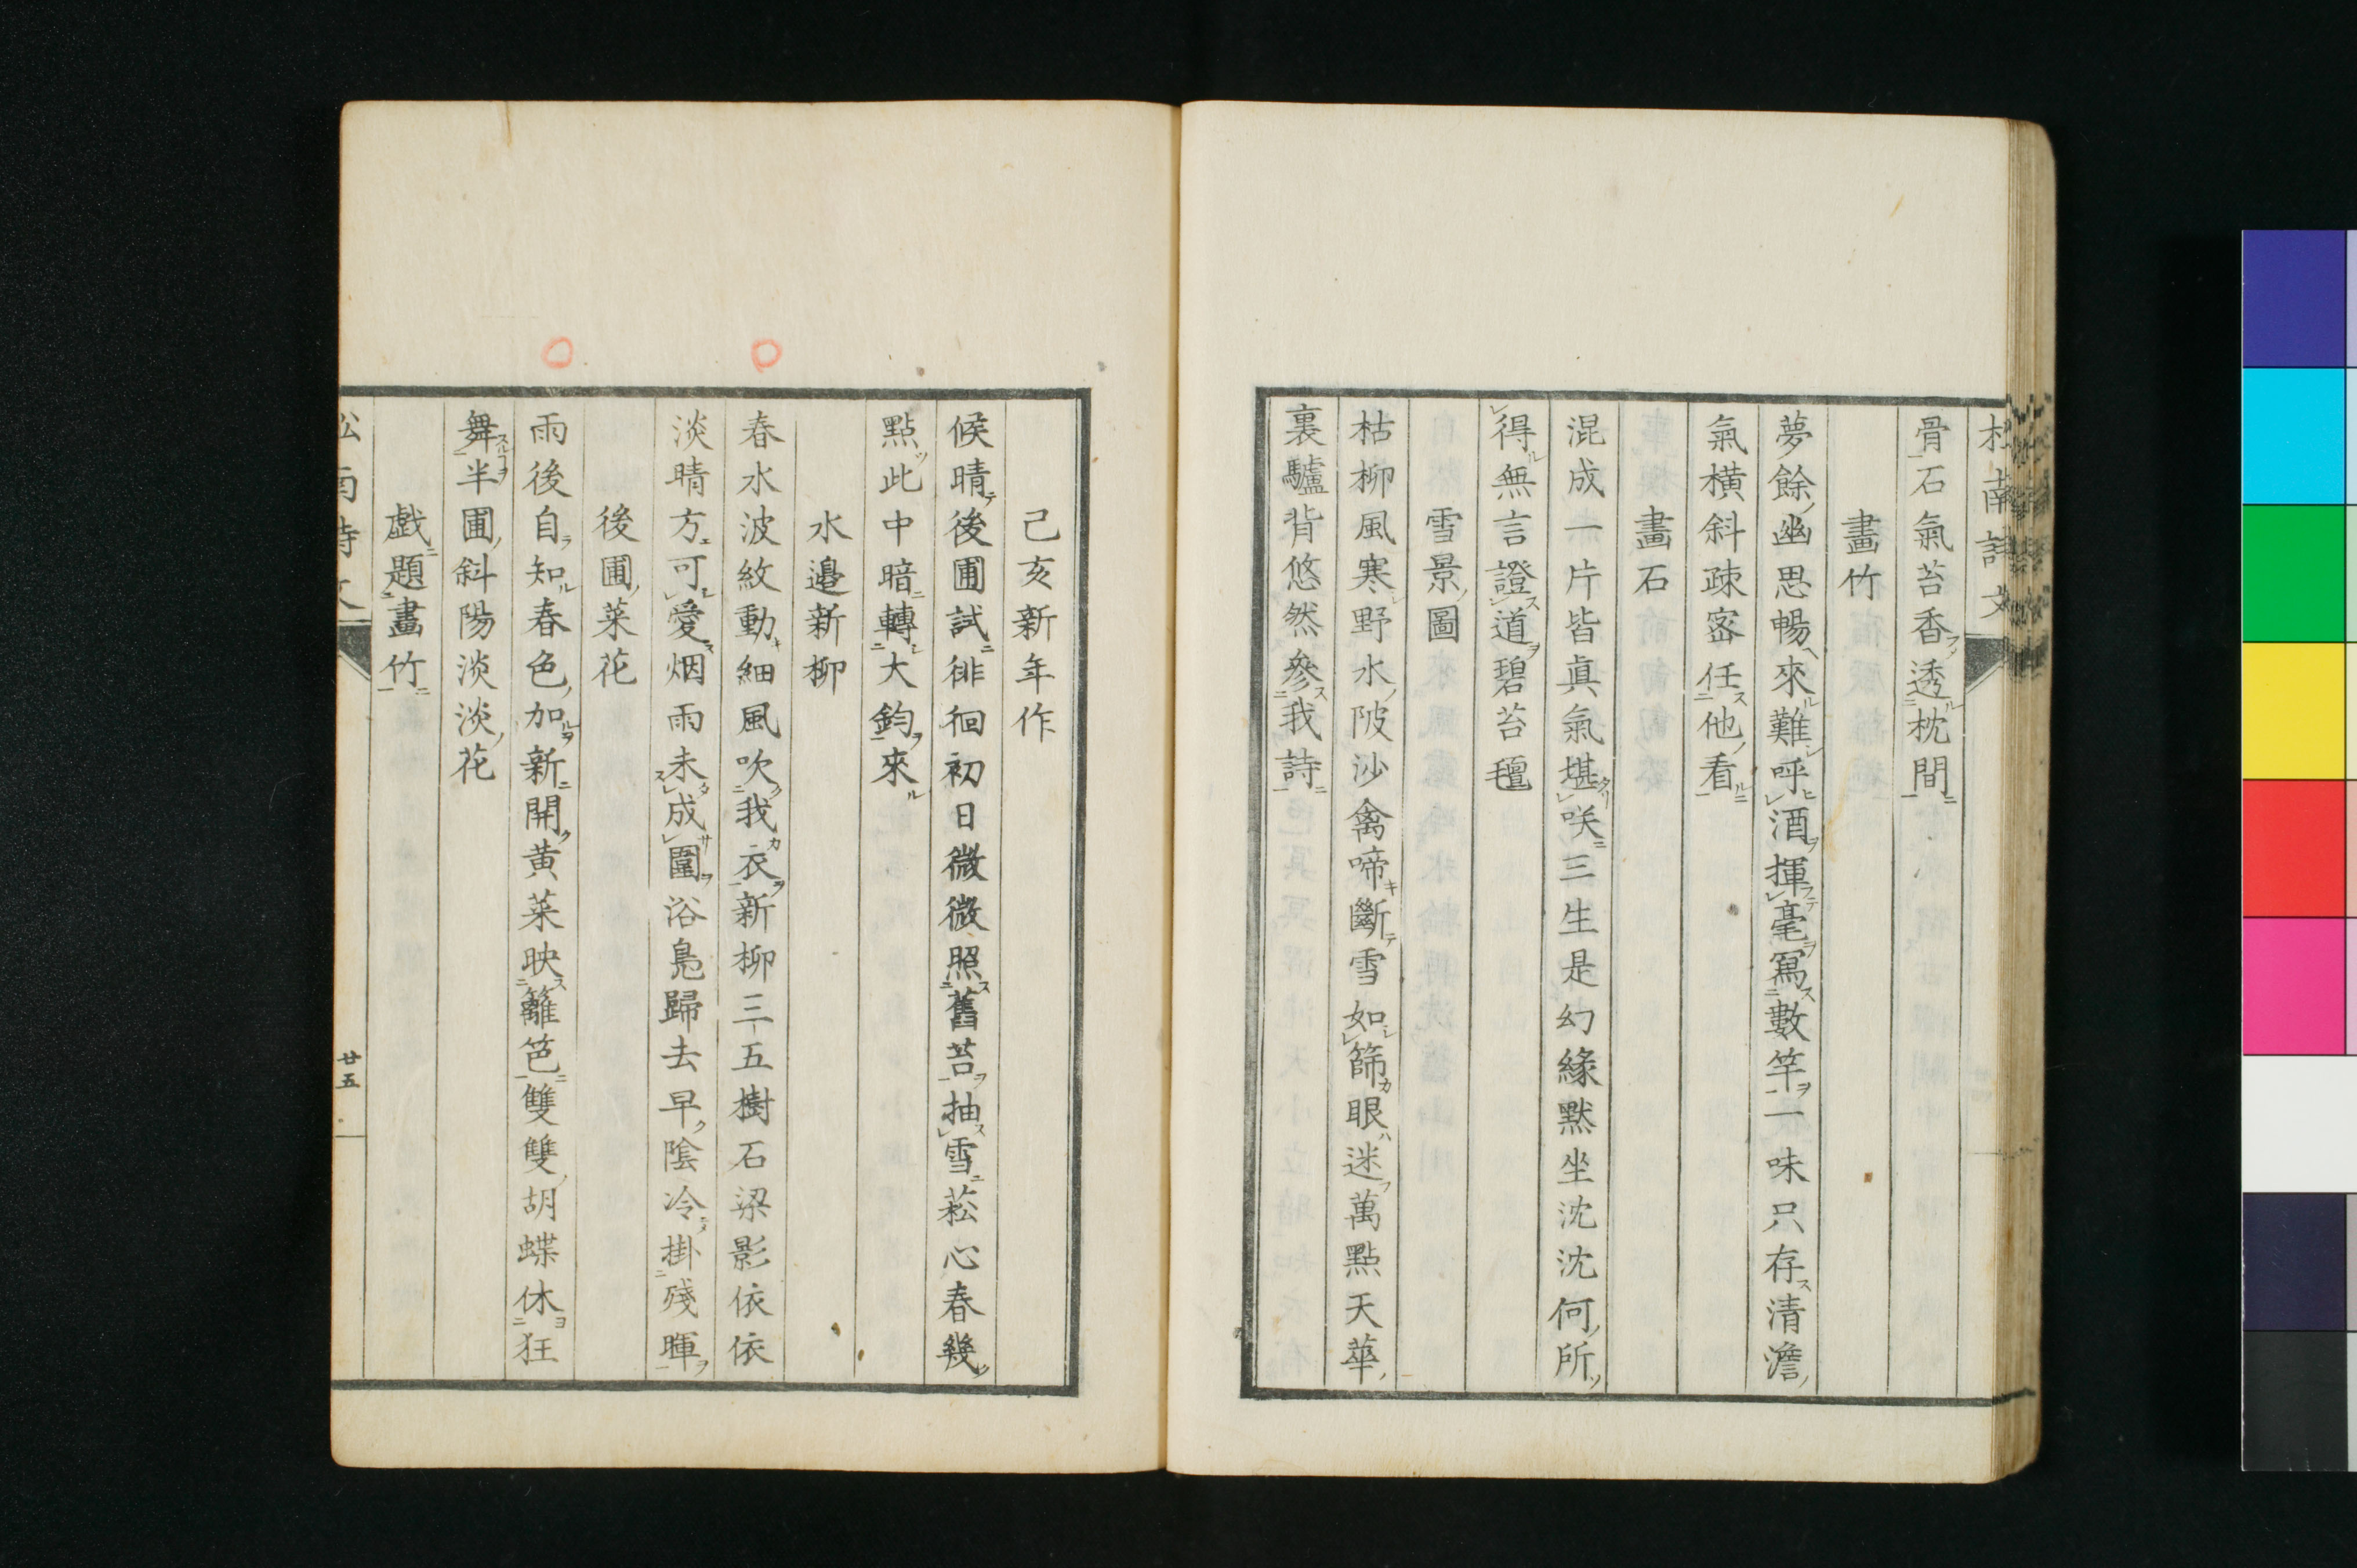 骨石氣苔香透枕間
畫竹
夢餘幽思暢來難呼酒揮毫冩數竿一味只存清澹
氣橫斜疎宻任他看
畫石
混成一片皆眞氣堪咲三生是幻緣默坐沈沈何所
得無言證道碧苔氊
雪景圖
枯柳風寒野水陂沙禽啼斷雪如篩眼迷萬點天華
裏驢背悠然參我詩
己亥新年作
候晴後圃試徘徊初日微微照舊苔抽雪菘心春幾
點此中暗轉大鈞來
水邊新柳
春水波紋動細風吹我衣新柳三五樹石梁影依依
淡晴方可愛烟雨未成圍浴鳧歸去早陰冷掛殘暉
後圃菜花
雨後自知春色加新開黄菜映籬笆雙雙胡蝶休狂
舞半圃斜陽淡淡花
戯題畫竹
廿五